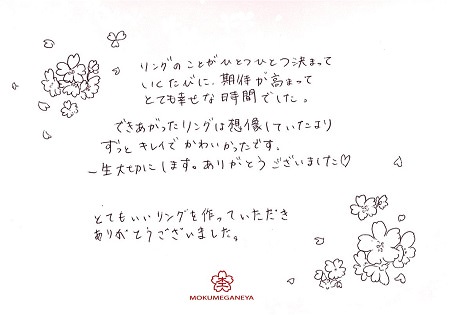 リングのことがひとつひとつ決まって
いくたびに、期待が高まって
とても幸せな時間でした。
できあがったリングは想像していたより
ずっとキレイでかわいかったです。
一生大切にします。ありがとうございました♡
とてもいいリングを作っていただき
ありがとうございました。
MOKUMEGANEYA